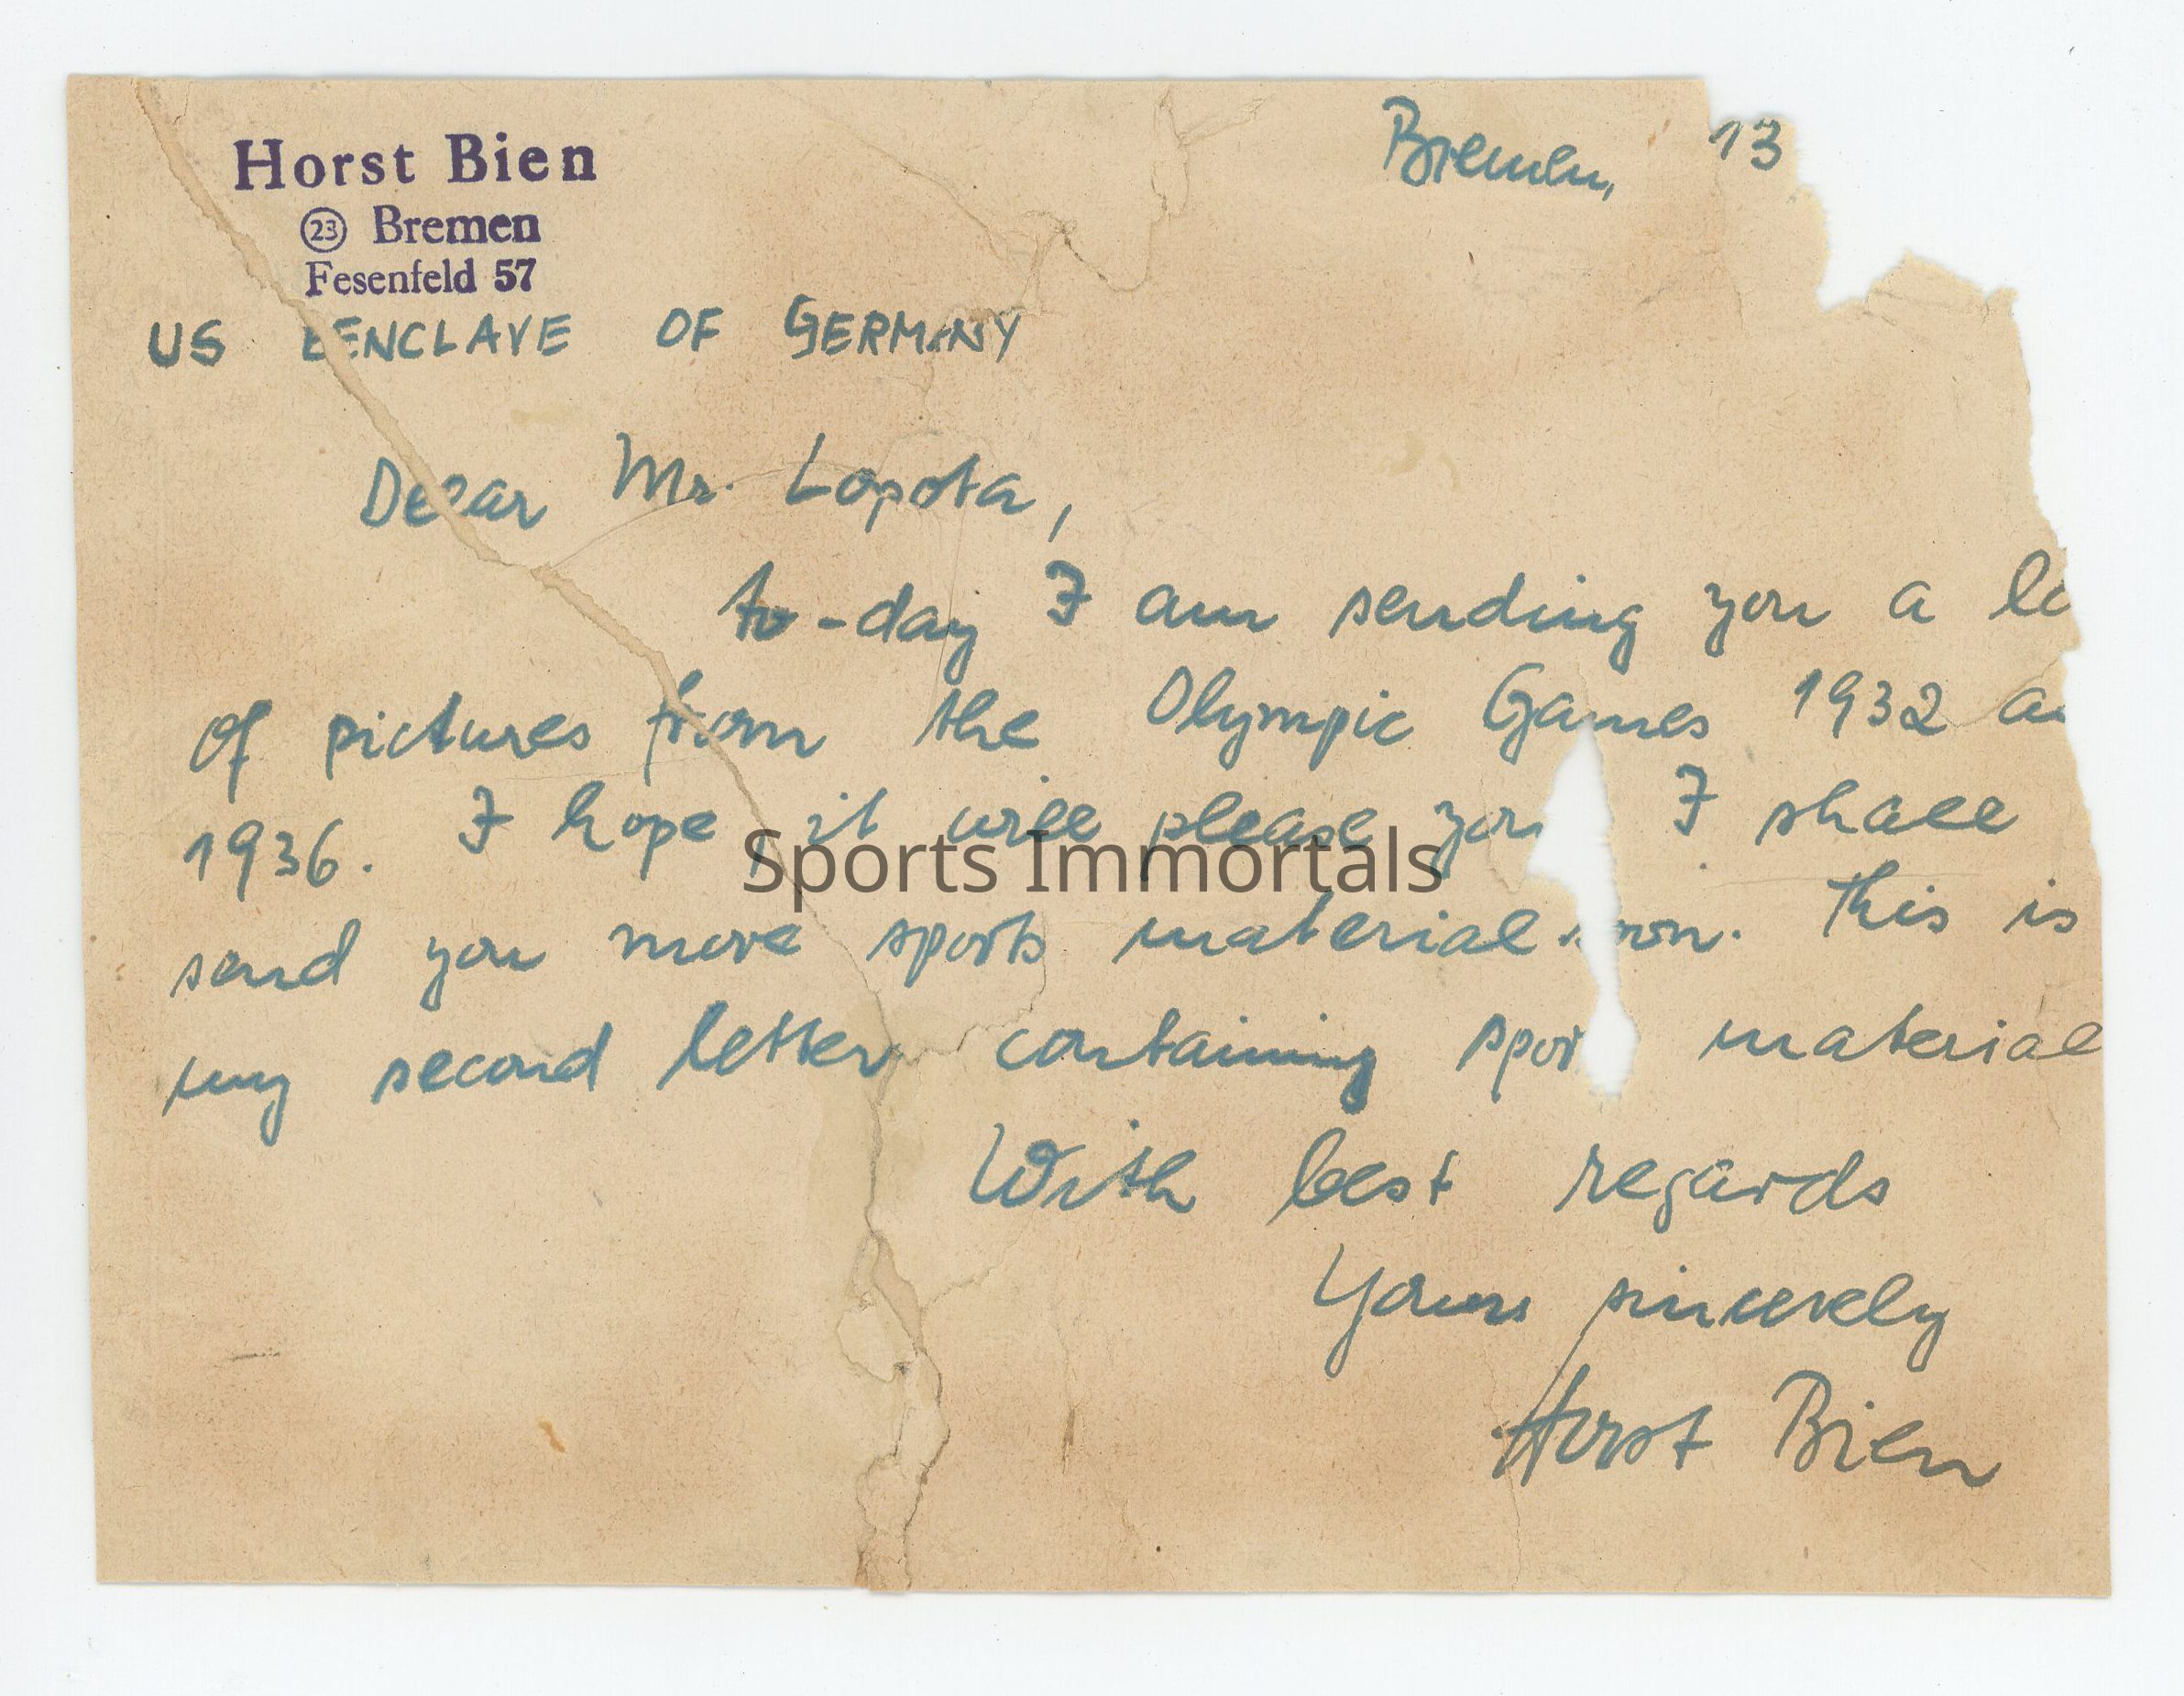 Horst Bien
23 Bremen
Fesenfeld 57
Bremen, 13
US ENCLAVE OF GERMANY
Dear Mr. Lopota,
to-day I am sending you a
of pictures from the Olympic Games 1932
1936. I hope it will please you I shall
send you more sports material This is
my second letter containing material
With best regards
Yours sincerely
Horst Bien
Sports Immortals